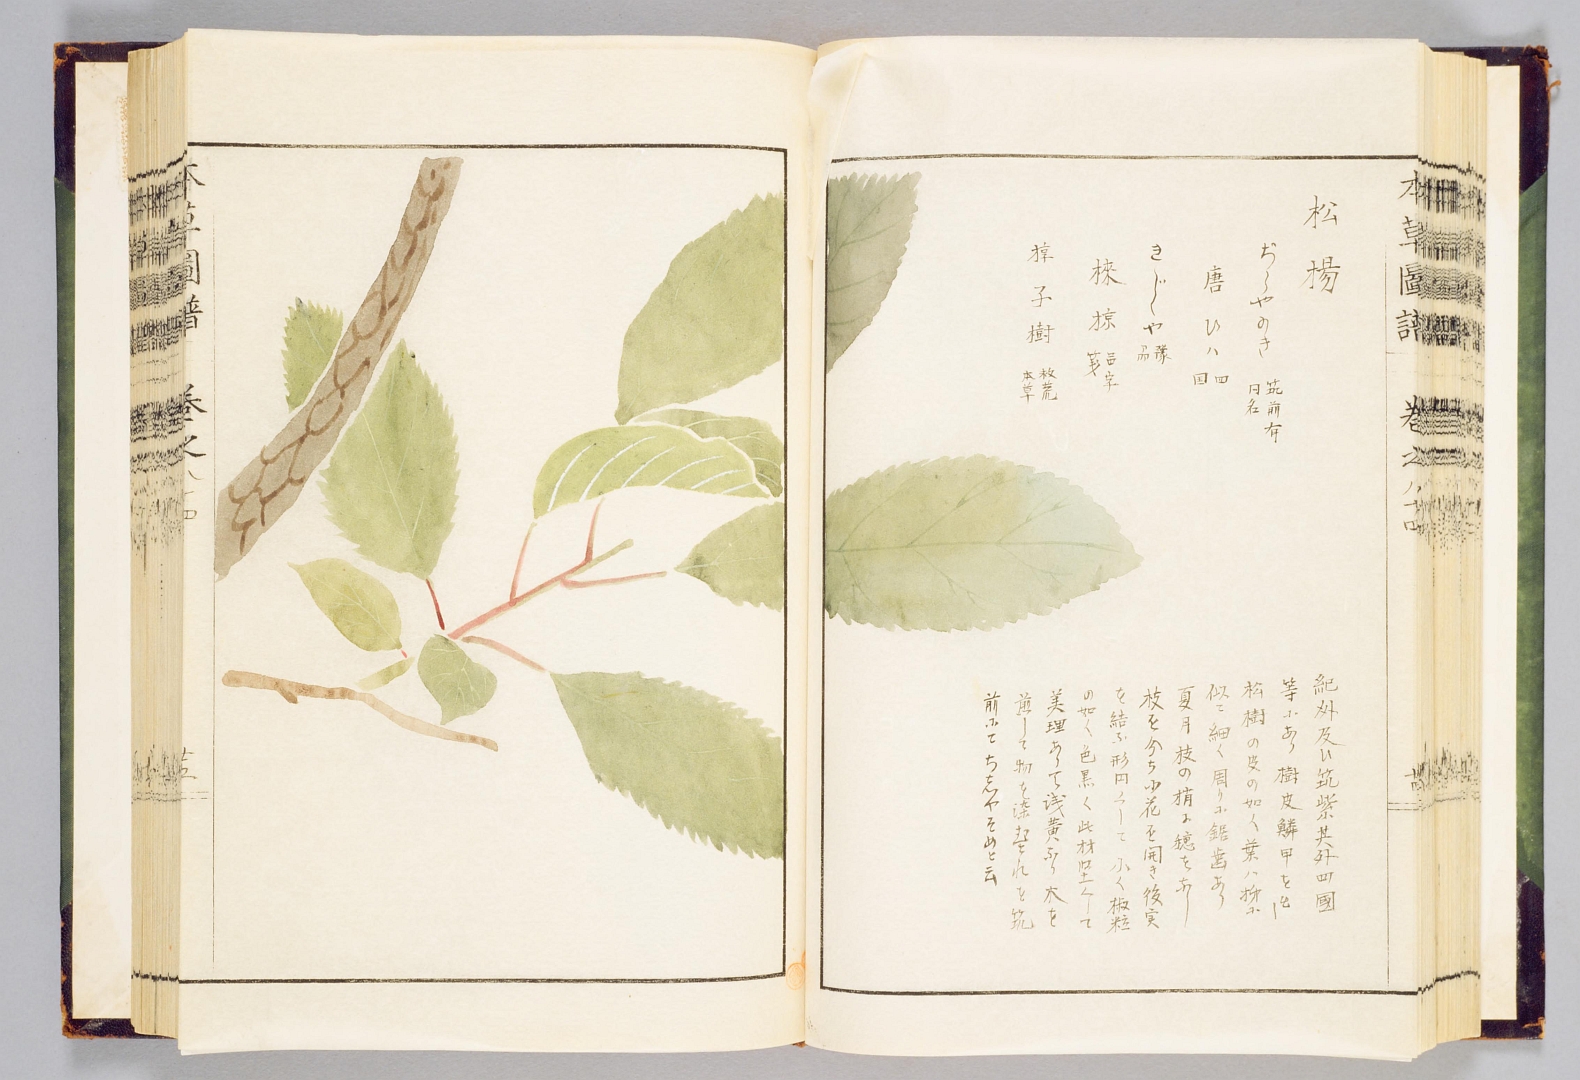 本草圖譜 卷之八十四
松楊
ちしやのき 筑前有 日名
唐ひハ 四国
きじしや 豫州
棶椋 百家 箋
椋子樹 救荒 本草
紀州及ひ筑紫其外四國
等にあり樹皮鱗甲を出し
松樹の皮の如く葉ハ柿に
似て細く周りに鋸歯あり
夏月枝の梢に穂をなし
枝を分ち小花を開き後実
を結ふ形円くして小く椒粒
の如く色黒く此材堅くして
美理ありて浅黄なり木を
煎して物を染む是れを筑
前にてちしやそめと云
本草圖譜 卷之八十四